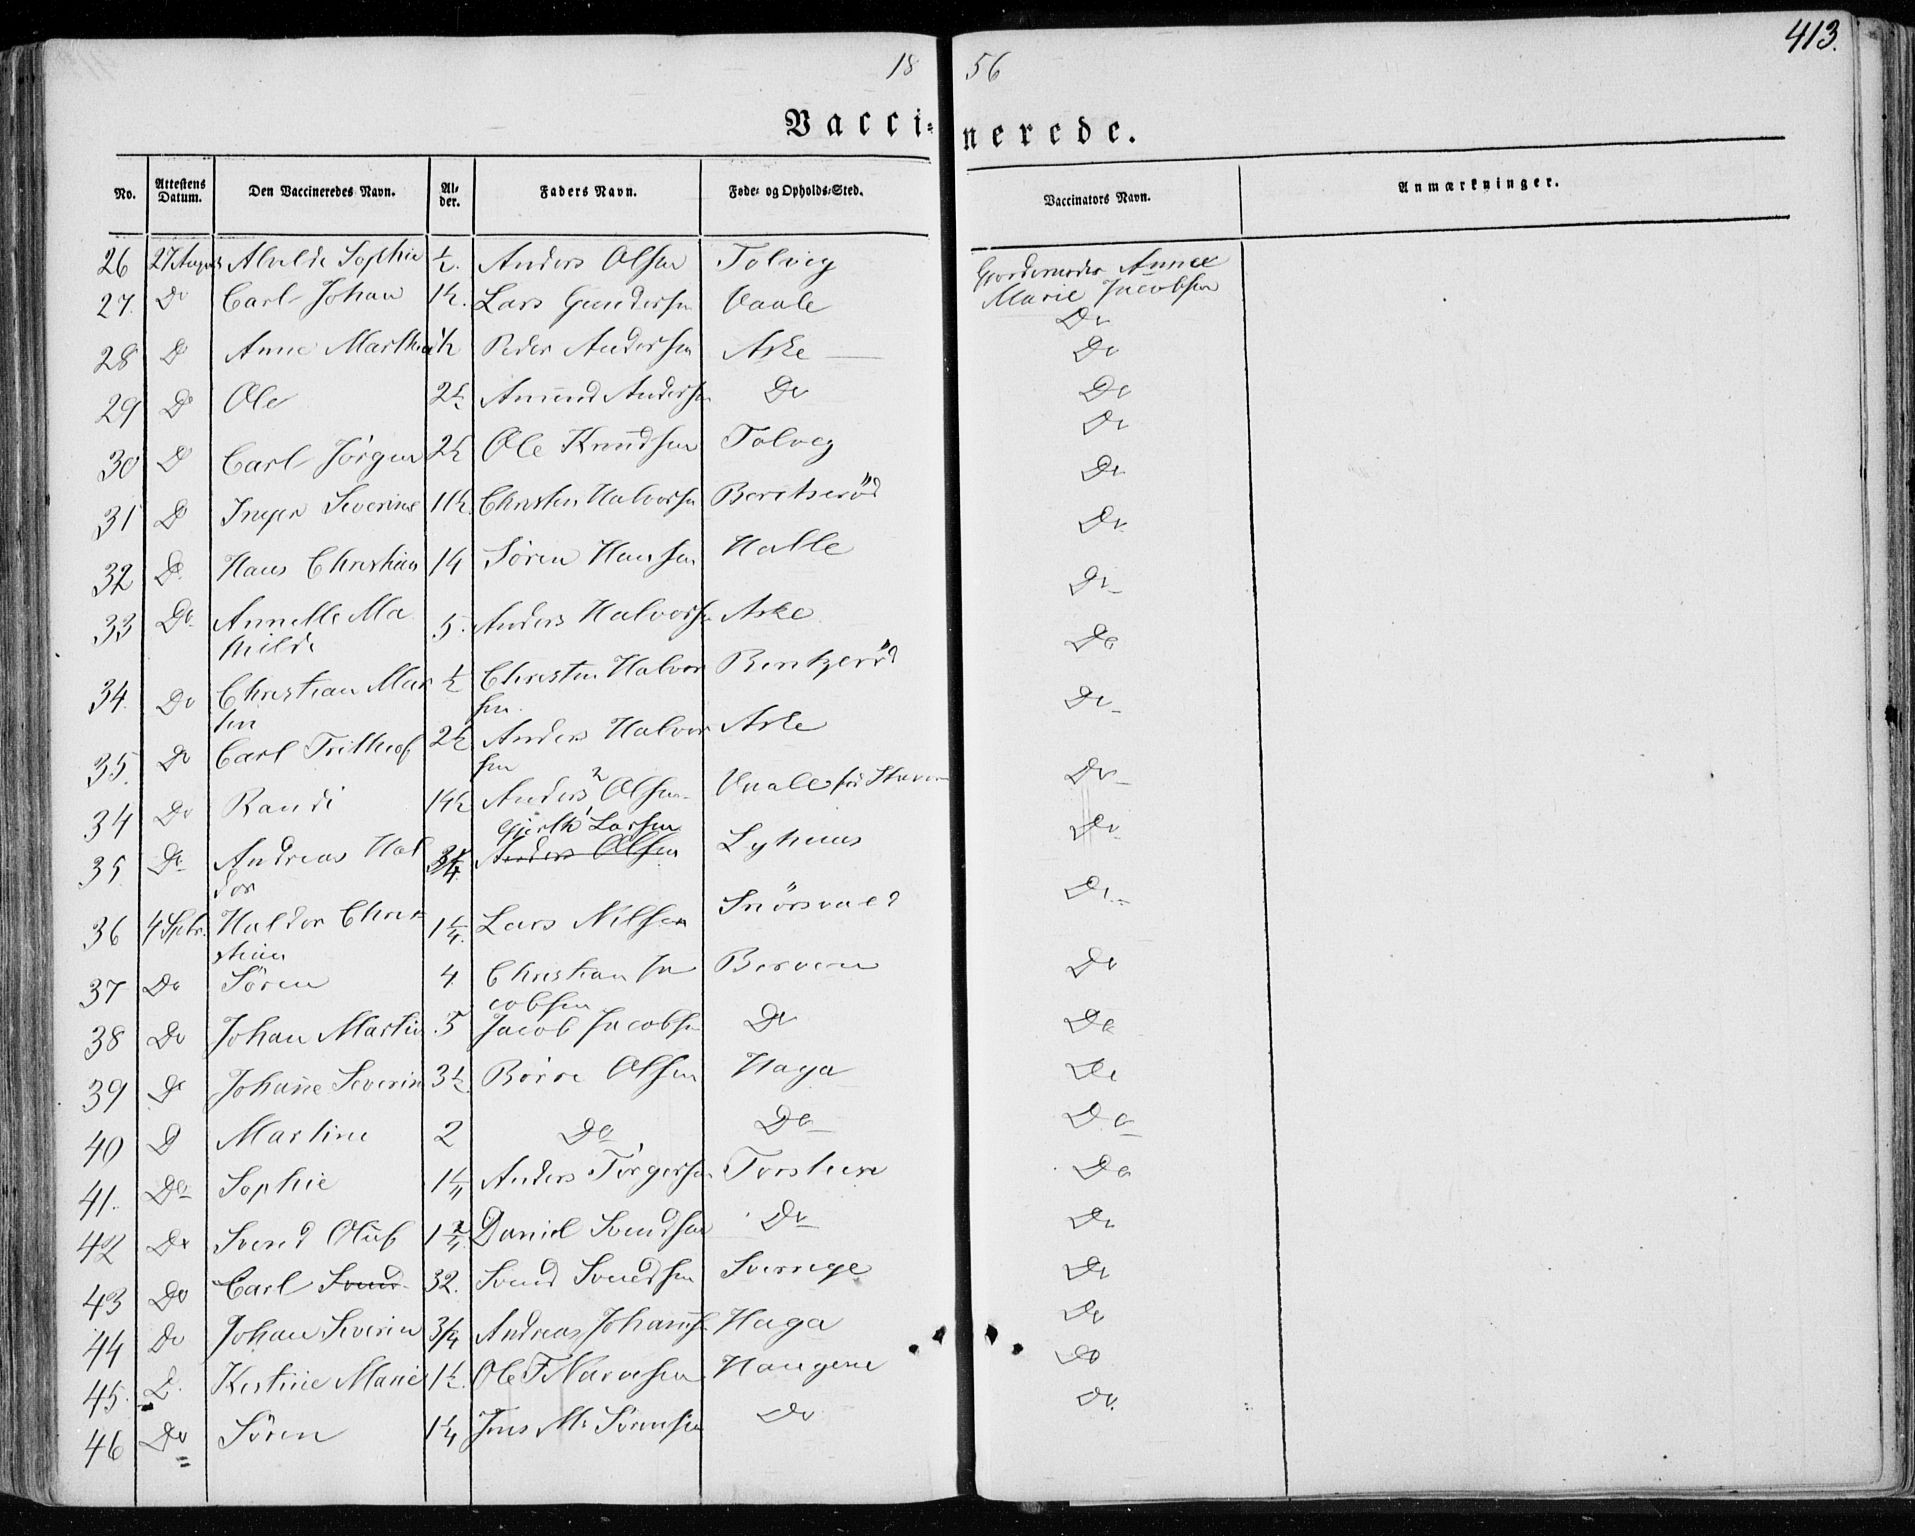 413.
18 56
Vacci- nerede.
No. Attestens Datum. Den Vaccineredes Navn. Al- der. Faders Navn. Føde- og Opholds-Sted. Vaccinators Navn. Anmærkninger.
26 27 August Alvilde Sophie ½. Anders Olsen Tolvig Gjordemoder Anne Marie Jacobsen
27. Do Carl Johan 1½. Lars Gundersen Vaale Do
28 D Anne Marthea ½ Peder Andersen Aske Do
29 D Ole 2½ Amund Andersen Do Do
30 D Carl Jörgen 2½ Ole Knudsen Tolvig Do
31 D Inger Severine 11½ Christen Halvorsen Beritseröd Do
32 D. Hans Christian 14 Sören Hansen Halle Do
33 Do Annette Ma
thilde 5. Anders Halvorsen Aske Do
34. Do Christian Mar
tin ½ Christen Halvor
sen. Bentzeröd Do
35. Do Carl Fritheof 2½ Anders Halvor
sen Aske Do
34 Do Randi 14½ Anders Olsen Vaale Do
35 Do Andreas Hal
dor ¾ Gjerth Larsen
Anders Olsen Lyhuus Do
36 4 Sptr. Haldor Chris
tian 1¼. Lars Nilsen Snörsvald Do
37 Do Sören 4 Christian Ja
cobsen Berven Do
38 Do Johan Martin 5 Jacob Jacobsen Do Do
39 Do Johanne Severin 3½ Börre Olsen Haga Do
40 D Martine 2 Do Do Do
41. Do Sophie 1¼ Anders Törgersen Torsteen Do
42 Do Svend Oluf 1¾ Daniel Svendsen Do Do
43 Do Carl Svend 32. Svend Svendsen Sverrige Do
44 Do Johan Severin 3/4 Andreas Johansen Haga Do
45. D. Kistine Marie 1½. Ole T Narvesen Haugene Do
46 Do Sören 1¼ Jens M. Sörensen Do Do.